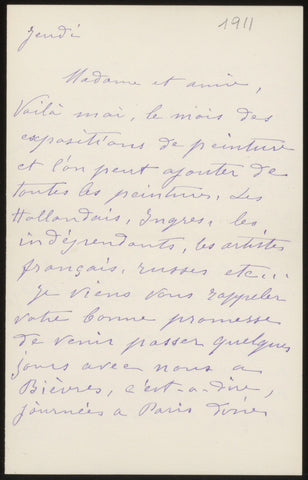 1911
Jeudi
Madame et amie,
Voilà mai, le mois des
expositions de peinture
et l'on peut ajouter de
toutes les peintures. Les
Hollandais, Ingres, les
indépendants, les artistes
français, russes etc...
Je viens vous rappeler
votre bonne promesse
de venir passer quelques
jours avec nous a
Bièvres, c'est-a-dire,
journées a Paris